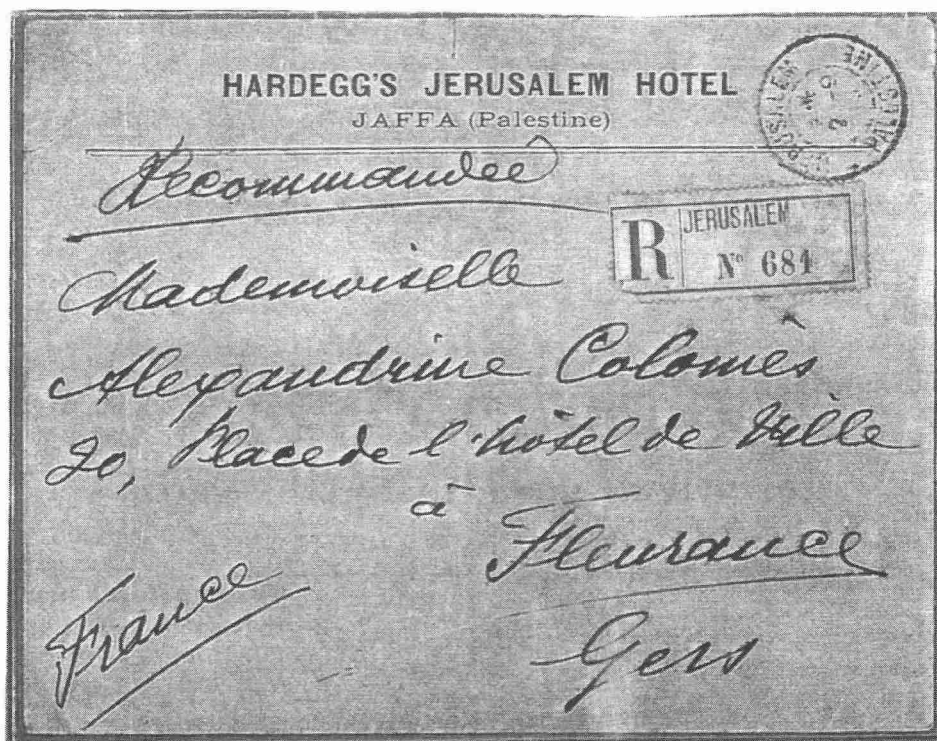 HARDEGG'S JERUSALEM HOTEL
JAFFA (Palestine)
JERUSALEM
PALESTINE
Recommandée
R JERUSALEM
N° 681
Mademoiselle
Alexandrine Colomès
20, Place de l'hôtel de Ville
à
Fleurance
Gers
France